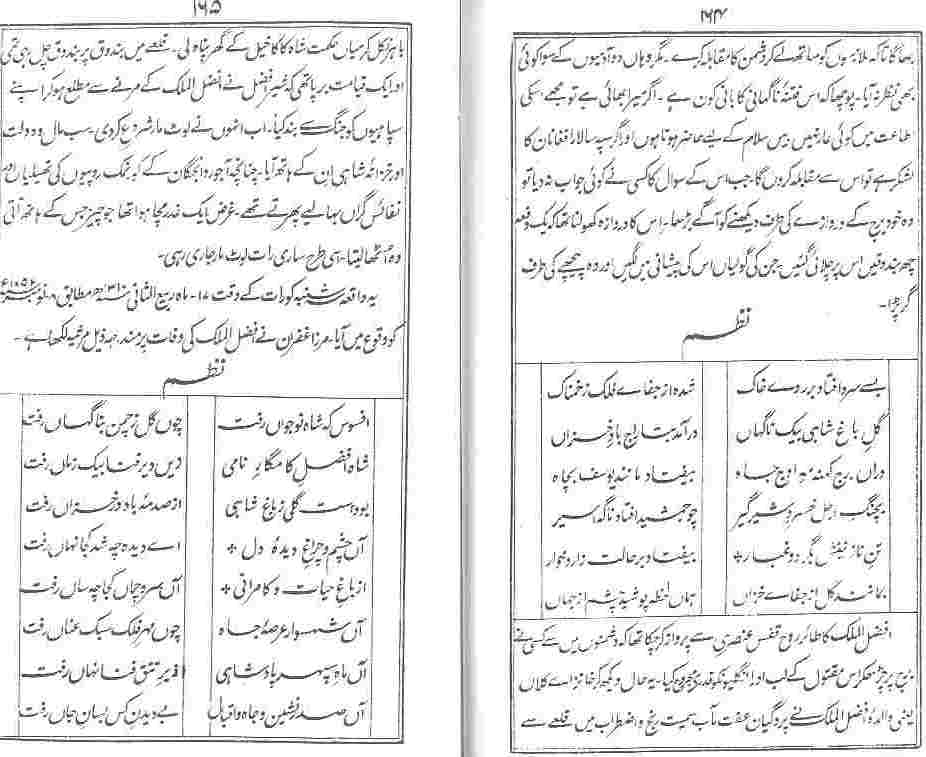 ۱۶۴
بھاگا تاکہ ملازموں کو ساتھ لے کر دشمن کا مقابلہ کرے۔ مگر وہاں دو آدمیوں کے سوا کوئی
بھی نظر نہ آیا۔ پوچھا کہ اس فتنۂ ناگہانی کا بانی کون ہے۔ اگر میرا بھائی ہے تو مجھے اسکی
طاعت میں کوئی عار نہیں میں سلام کے لیے حاضر ہوتا ہوں اور اگر سپہ سالار افغانان کا
لشکر ہے تو اس سے مقابلہ کروں گا۔ جب اس کے سوال کا کسی نے کوئی جواب نہ دیا تو
وہ خود برج کے دروازے کی طرف دیکھنے کو آگے بڑھا۔ اس کا دروازہ کھولنا تھا کہ یک دفعہ
چھ بندوقیں اس پر چلائی گئیں۔ جن کی گولیاں اس کی پیشانی میں لگیں اور وہ پیچھے کی طرف
گر پڑا۔
نظم
بسے سرو افتاد بر روے خاک شدہ از جفاے فلک زخمناک
گل باغ شاہی بیک ناگہاں درآمد بتاراج باد خزاں
دراں برج کمند مہ اوج جاہ بیفتاد مانند یوسف بچاہ
بچنگ اجل خسرو شیر گیر چو جمشید افتاد ناگہ اسیر
تن نازنینش بگرد و غبار بیفتاد بر حالت زار و خوار
بمانند گل از جفاے خزاں ہماں لحظہ پوشید چشم از جہاں
افضل الملک کا طائر روح قفس عنصری سے پرواز کر چکا تھا کہ دشمنوں میں سے کسی نے
برج پر چڑھ کر اس مقتول کے لب اور انگلیوں کو قدرے مجروح کیا۔ یہ حال دیکھ کر خانزاے کلاں
یعنی والدۂ افضل الملک نے پردگیان عفت مآب سمیت رنج و اضطراب میں قلعے سے
۱۶۵
باہر نکل کر میاں حکمت شاہ کاکاخیل کے گھر پناہ لی۔ قلعے میں بندوق پر بندوق چل رہی تھی
اور ایک قیامت برپا تھی کہ شیر افضل نے افضل الملک کے مرنے سے مطلع ہو کر اپنے
سپاہیوں کو جنگ سے بند کیا۔ اب انھوں نے لوٹ مار شروع کر دی۔ سب مال و دولت
اور خزانۂ شاہی ان کے ہاتھ آیا۔ چنانچہ آجورد انجگان کے کے روپیوں کی تھیلیاں اور
نفائس گراں بہا لیے پھرتے تھے۔ غرض ایک غدر مچا ہوا تھا جو چیز جس کے ہاتھ آتی
وہ اٹھا لیتا۔ اسی طرح ساری رات لوٹ مار جاری رہی۔
یہ واقعہ شنبہ کو رات کے وقت ۱۷۔ ماہ ربیع الثانی ۱۳۱۰ھ مطابق نومبر
کو وقوع میں آیا۔ مرزا غفران نے افضل الملک کی وفات پر مندرجہ ذیل مرثیہ لکھا ہے۔
نظم
افسوس کہ شاہ نوجواں رفت چوں گل ز چمن بناگہاں رفت
شاہ افضل کامگار نامی زیں دیر فنا بیک زماں رفت
بودست گلی ز باغ شاہی از صدمۂ باد در خزاں رفت
آں چشم و چراغ دیدۂ دل اے دیدہ چہ شد کجا نہاں رفت
از باغ حیات و کامرانی آں سرو چماں کجا چہ ساں رفت
آں شہسوار عرصۂ جاہ چوں مہر فلک سبک عناں رفت
آں ماہ سپہر پادشاہی در زیر تتق فنا نہاں رفت
آں صدر نشین و جاہ و اقبال بے دیدن کس بسان جاں رفت